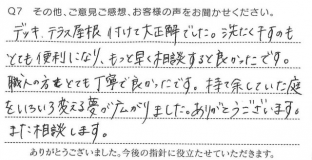 Q7 その他、ご意見ご感想、お客様の声をお聞かせください。
デッキ、テラス屋根 付けて大正解でした。洗たく干すのも
とても便利になり、もっと早く相談すると良かったです。
職人の方もとても丁寧で良かったです。持て余していた庭
をいろいろ変える夢が広がりました。ありがとうございます。
また相談します。
ありがとうございました。今後の指針に役立たせていただきます。